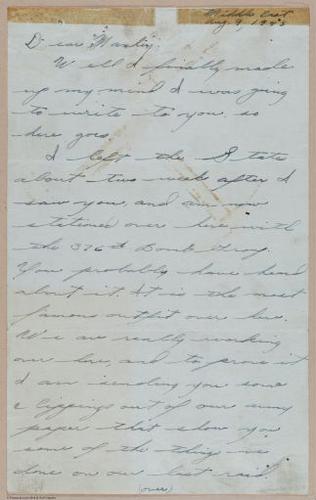 Middle East
Aug 9, 1943
Dear Marty:
Well I finally made
up my mind I was going
to write to you, so
here goes.
I left the States
about two weeks after I
saw you, and am now
stationed over here with
the 376th Bomb Group.
You probably have heard
about it. It is the most
famous outfit over here.
We are really working
over here, and to prove it
I am sending you some
clippings out of our army
paper that show you
some of the things we
done on our last raid.
(over)